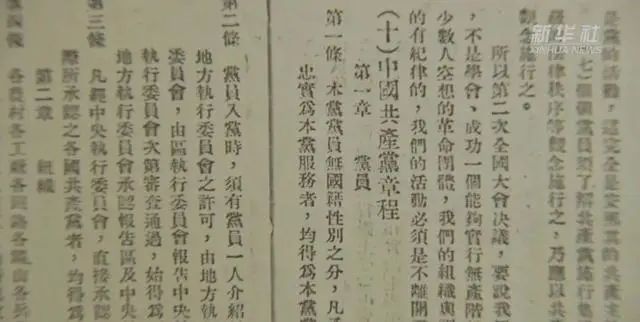 新华社
XINHUA NEWS
個個黨員須了解共產黨施行集
律秩序等觀念施行之，乃應以共
觀念施行之。
所以第二次全國大會決議，要說我
不是學會、成功一個能夠實行無產階
少數人空想的革命團體，我們的組織與
的有紀律的，我們的活動必須是不離開
(十)中國共產黨章程
第一章 黨員
第一條 本黨黨員無國籍性別之分，凡承
忠實爲本黨服務者，均得爲本黨黨
第二條 黨員入黨時，須有黨員一人介紹
地方執行委員會之許可，由地方執
委員會，由區執行委員會報告中央
執行委員會次第審查通過，始得爲
地方執行委員會承認報告區及中央
第三條 凡經中央執行委員會，直接承認
際所承認之各國共產黨者，均得爲
第二章 組織
第四條 各農村各工廠各鐵路各礦山各兵